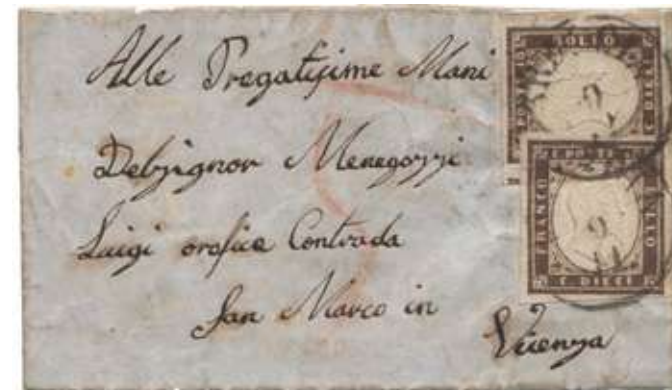 Alle Pregatissime Mani
Delsignor Menegozzi
Luigi orafice Contrada
San Marco in
Vicenza
BOLLO
FRANCO
BOLLO
C. DIECI